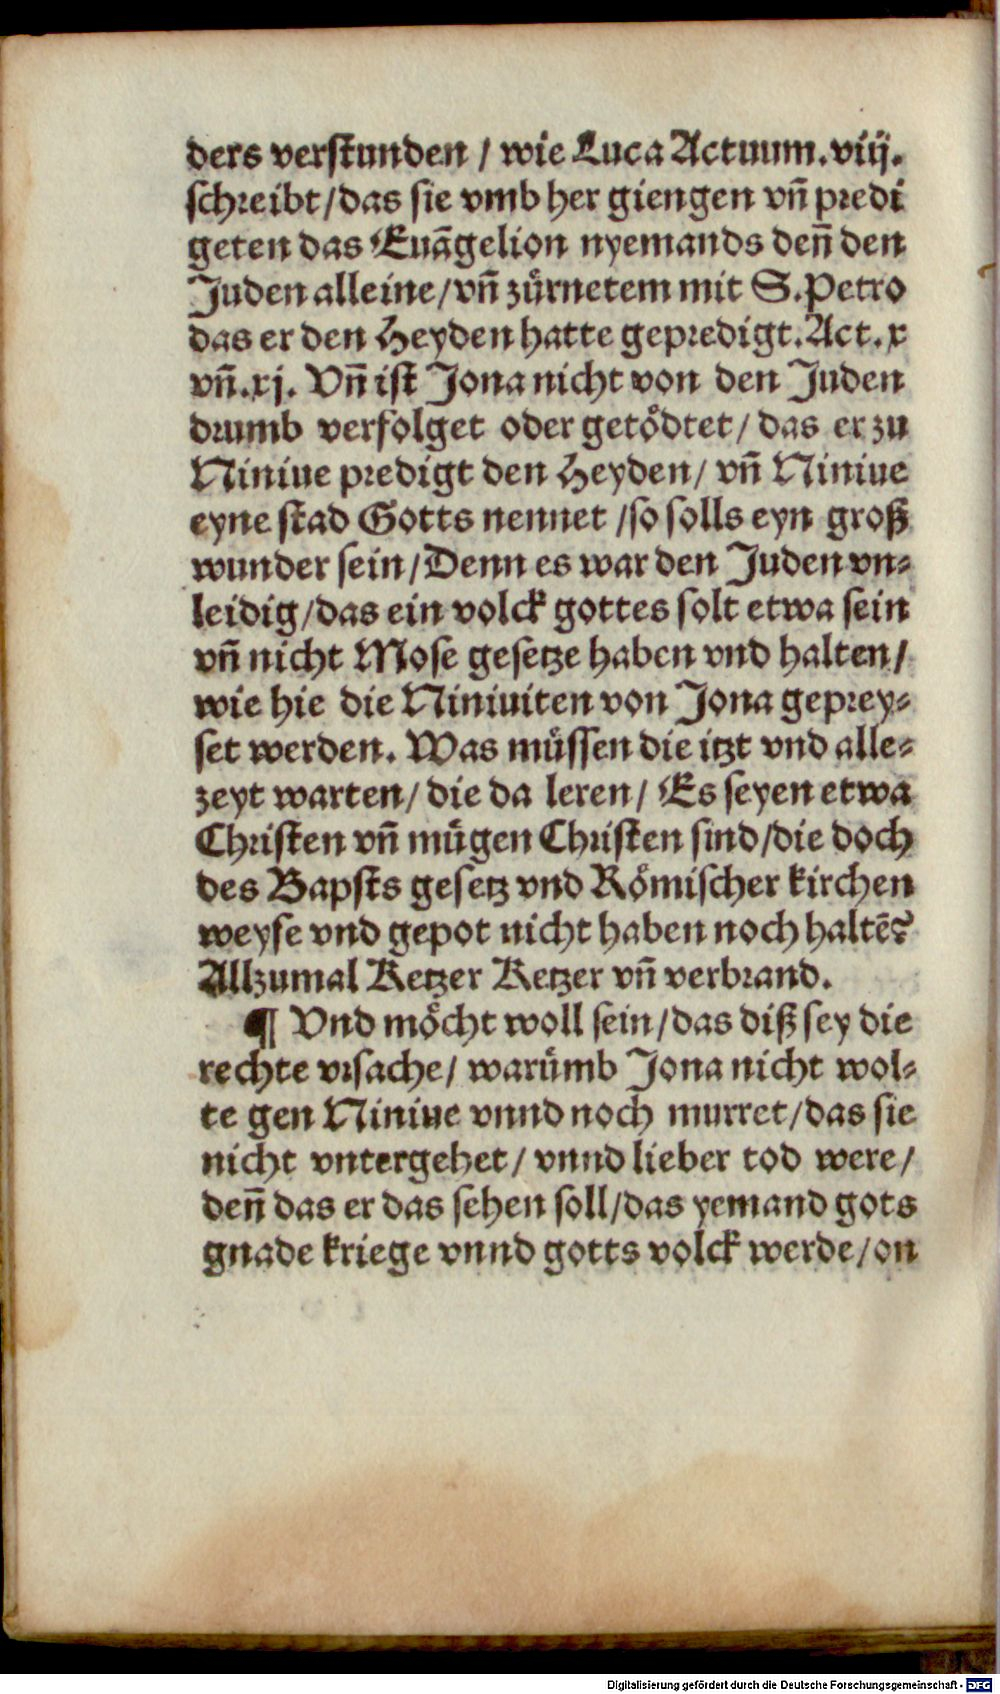 ders verstunden / wie Luca Actuum. viij.
schreibt / das sie vmb her giengen vn̄ predi
geten das Euāgelion nyemands den̄ den
Juden alleine / vn̄ zuͤrnetem mit S. Petro
das er den Heyden hatte gepredigt. Act. x
vn̄. xj. Vn̄ ist Jona nicht von den Juden
drumb verfolget oder getoͤdtet / das er zu
Niniue predigt den Heyden / vn̄ Niniue
eyne stad Gotts nennet / so solls eyn groß
wunder sein / Denn es war den Juden vn⸗
leidig / das ein volck gottes solt etwa sein
vn̄ nicht Mose gesetze haben vnd halten /
wie hie die Niniuiten von Jona geprey⸗
set werden. Was muͤssen die itzt vnd alle⸗
zeyt warten / die da leren / Es seyen etwa
Christen vn̄ muͤgen Christen sind / die doch
des Bapsts gesetz vnd Roͤmischer kirchen
weyse vnd gepot nicht haben noch haltē?
Allzumal Ketzer Ketzer vn̄ verbrand.
¶ Vnd moͤcht woll sein / das diß sey die
rechte vrsache / waruͤmb Jona nicht wol⸗
te gen Niniue vnnd noch murret / das sie
nicht vntergehet / vnnd lieber tod were /
den̄ das er das sehen soll / das yemand gots
gnade kriege vnnd gotts volck werde / on
Digitalisierung gefördert durch die Deutsche Forschungsgemeinschaft - DFG